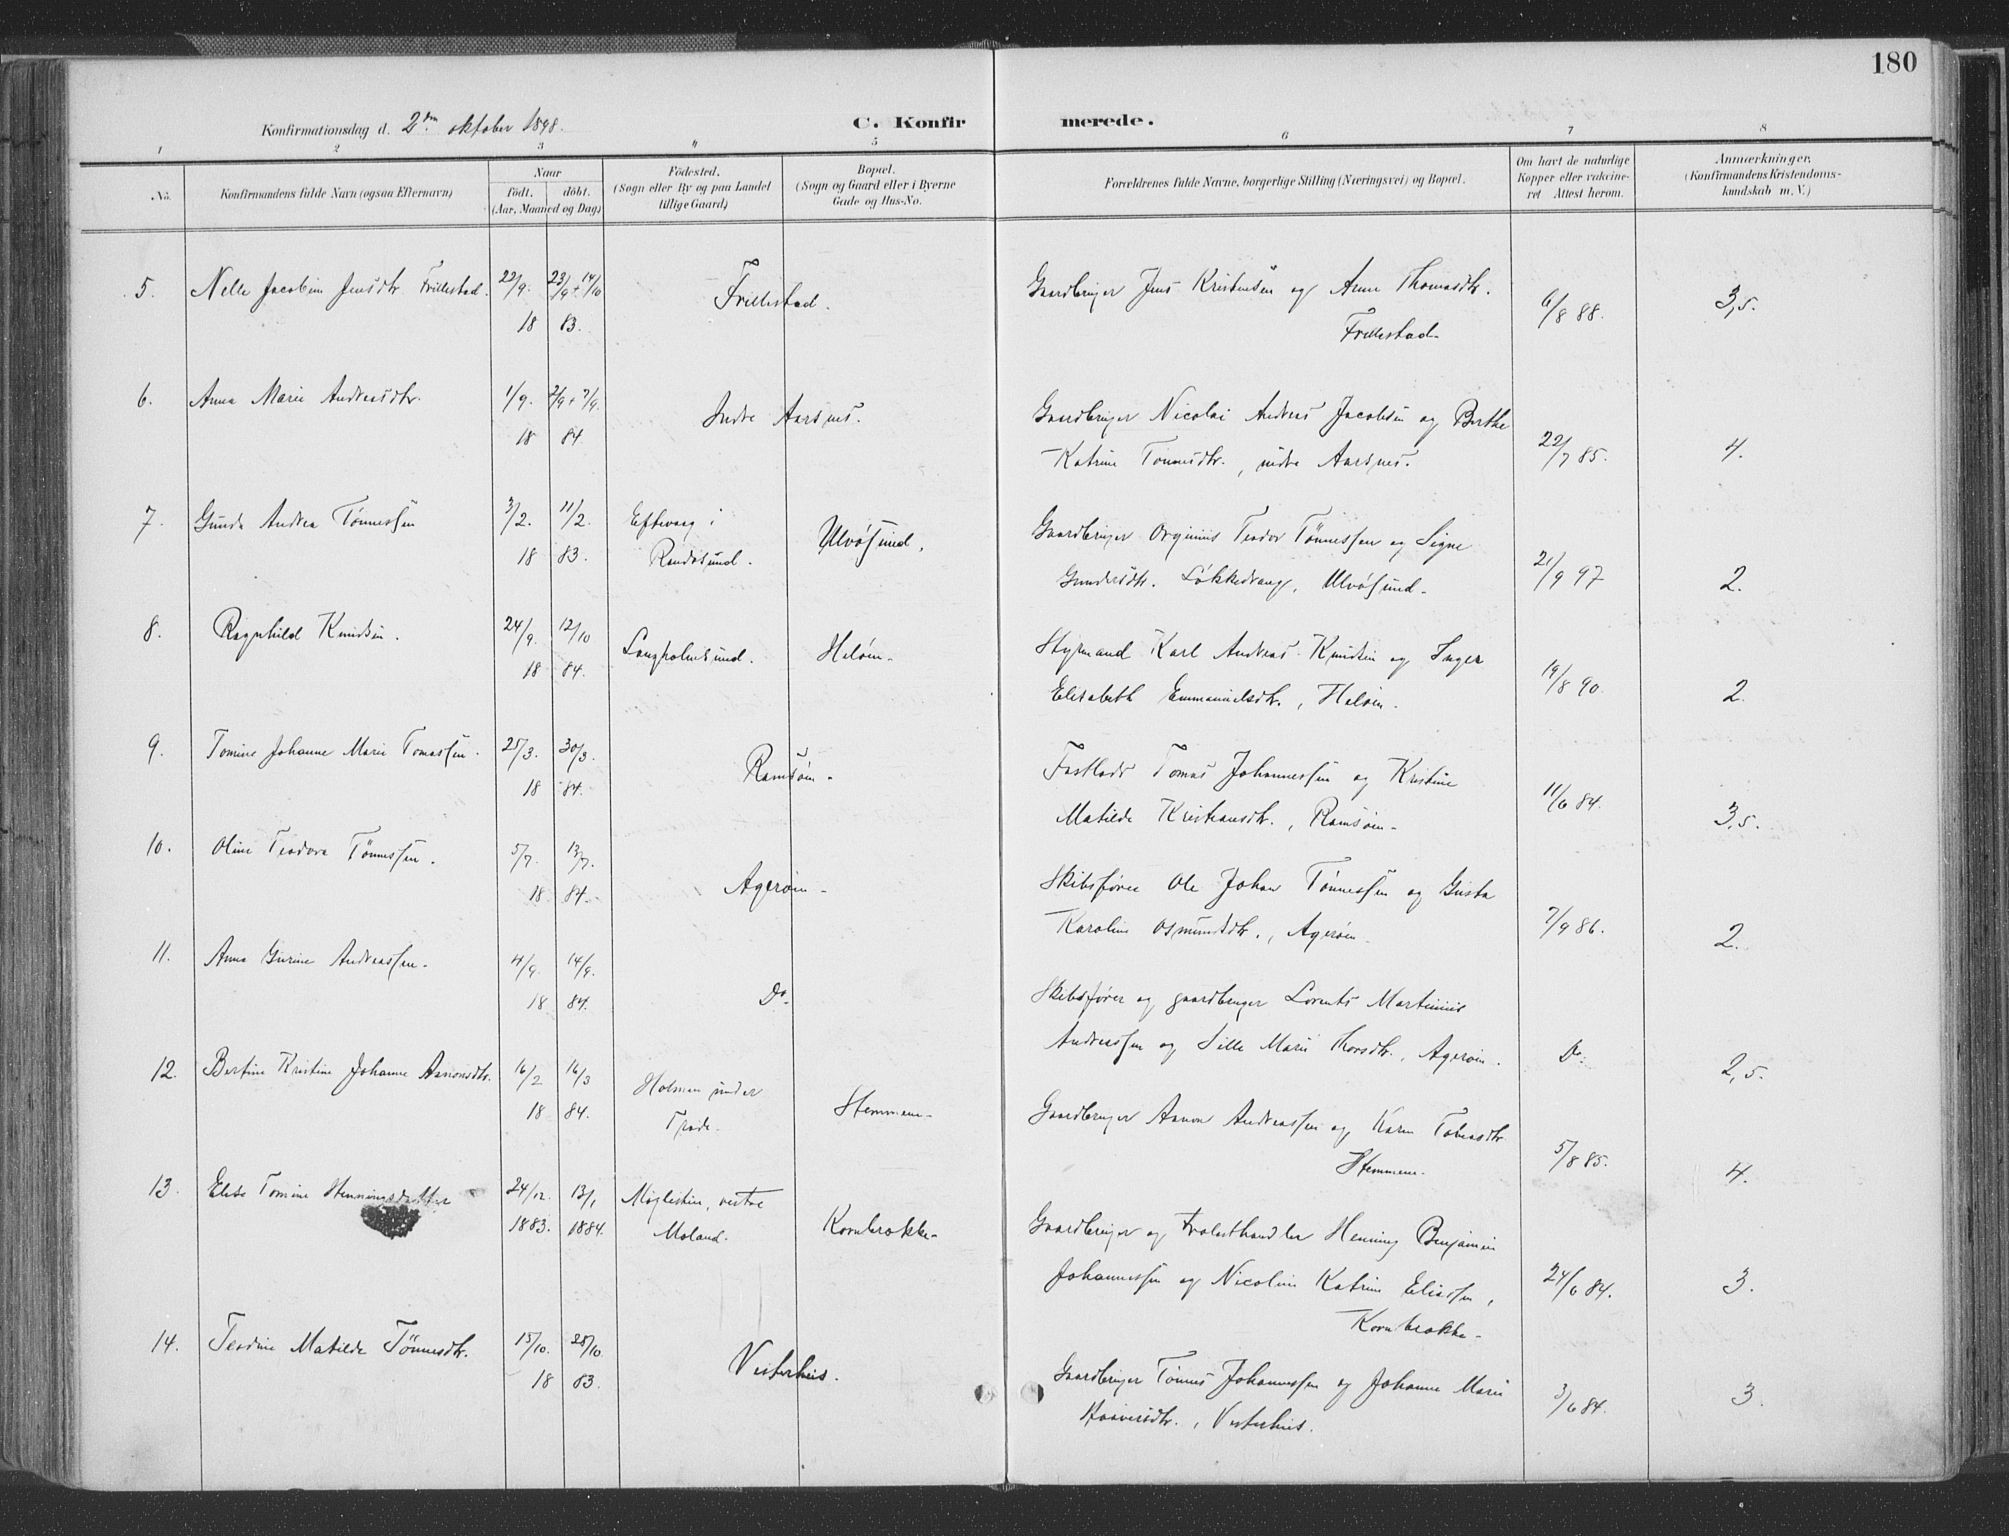 180
Konfirmationsdag d. 2den oktober 1898.
C. Konfirmerede.
1 2 3 4 5 6 7 8
No.
Konfirmandens fulde Navn (ogsaa Efternavn)
Naar
födt. döbt.
(Aar, Maaned og Dag)
Födested.
(Sogn eller By og paa Landet
tillige Gaard)
Bopæl.
(Sogn og Gaard eller i Byerne
Gade og Hus-No.
Forældrenes fulde Navne, borgerlige Stilling (Næringsvei) og Bopæl.
Om havt de naturlige
Kopper eller vakcine-
ret Attest herom.
Anmærkninger,
(Konfirmandens Kristendoms-
kundskab m. V.)
5. Nelle Jacobine Jensdtr. Frillestad. 22/9. 23/9 + 14/10
18 83.
Frillestad.
Gaardbruger Jens Kristensen og Anne Thomasdtr.
Frillestad.
6/8 88. 3,5.
6. Anna Marie Andreasdtr. 1/9. 2/9 + 7/9.
18 84
Indre Aarsnes.
Gaardbruger Nicolai Andreas Jacobsen og Berthe
Katrine Tønnesdtr., indre Aarsnes.
22/7 85. 4.
7. Gunda Andrea Tønnessen 3/2. 11/2.
18 83.
Eftevaag i
Randøsund.
Ulvøsund.
Gaardbruger Orginius Teodor Tønnessen og Signe
Gundersdtr. Løkkedvang, Ulvøsund.
21/9 97 2.
8. Ragnhild Knudsen. 24/9. 12/10
18 84.
Langholmsund.
Heløen.
Styrmand Karl Andreas Knudsen og Inger
Elisabeth Emmanuelsdtr., Heløen.
19/8 90. 2.
9. Tomine Johanne Marie Tomassen. 25/3. 30/3.
18 84.
Ramsøen.
Fastlods Tomas Johannessen og Kristine
Matilde Kristiansdtr., Ramsøen.
11/6 84. 3,5.
10. Oline Teodora Tønnessen. 5/7. 13/7.
18 84.
Agerøen.
Skibsfører Ole Johan Tønnessen og Gusta
Karoline Osmundsdtr., Agerøen.
7/9 86. 2.
11. Anna Gurine Andreassen. 4/9. 14/9.
18 84.
Do.
Skibsfører og gaardbruger Lorents Martinius
Andreassen og Sille Marie Thorsdtr., Agerøen.
Do. 2,5.
12. Bertine Kristine Johanne Aanonsdtr. 16/2 16/3
18 84.
Holmen under
Hemmene.
Gaardbruger Aanon Andreassen og Karen Tobiasdtr.
Hemmene.
5/8 85. 4.
13. Elise Tomine Henningsdatter 24/12. 13/1
1883. 1884.
Møglestue, vestre
Moland.
Kornbrokke.
Gaardbruger og Henning Benjamin
Johannessen og Nicoline Katrine Eliassen,
Kornbrokke.
24/6 84. 3.
14. Teodine Matilde Tønnesdtr. 15/10. 28/10
18 83.
Vesterhus.
Gaardbruger Tønnes Johannessen og Johanne Marie
Haaversdtr., Vesterhus.
3/6 84. 3.